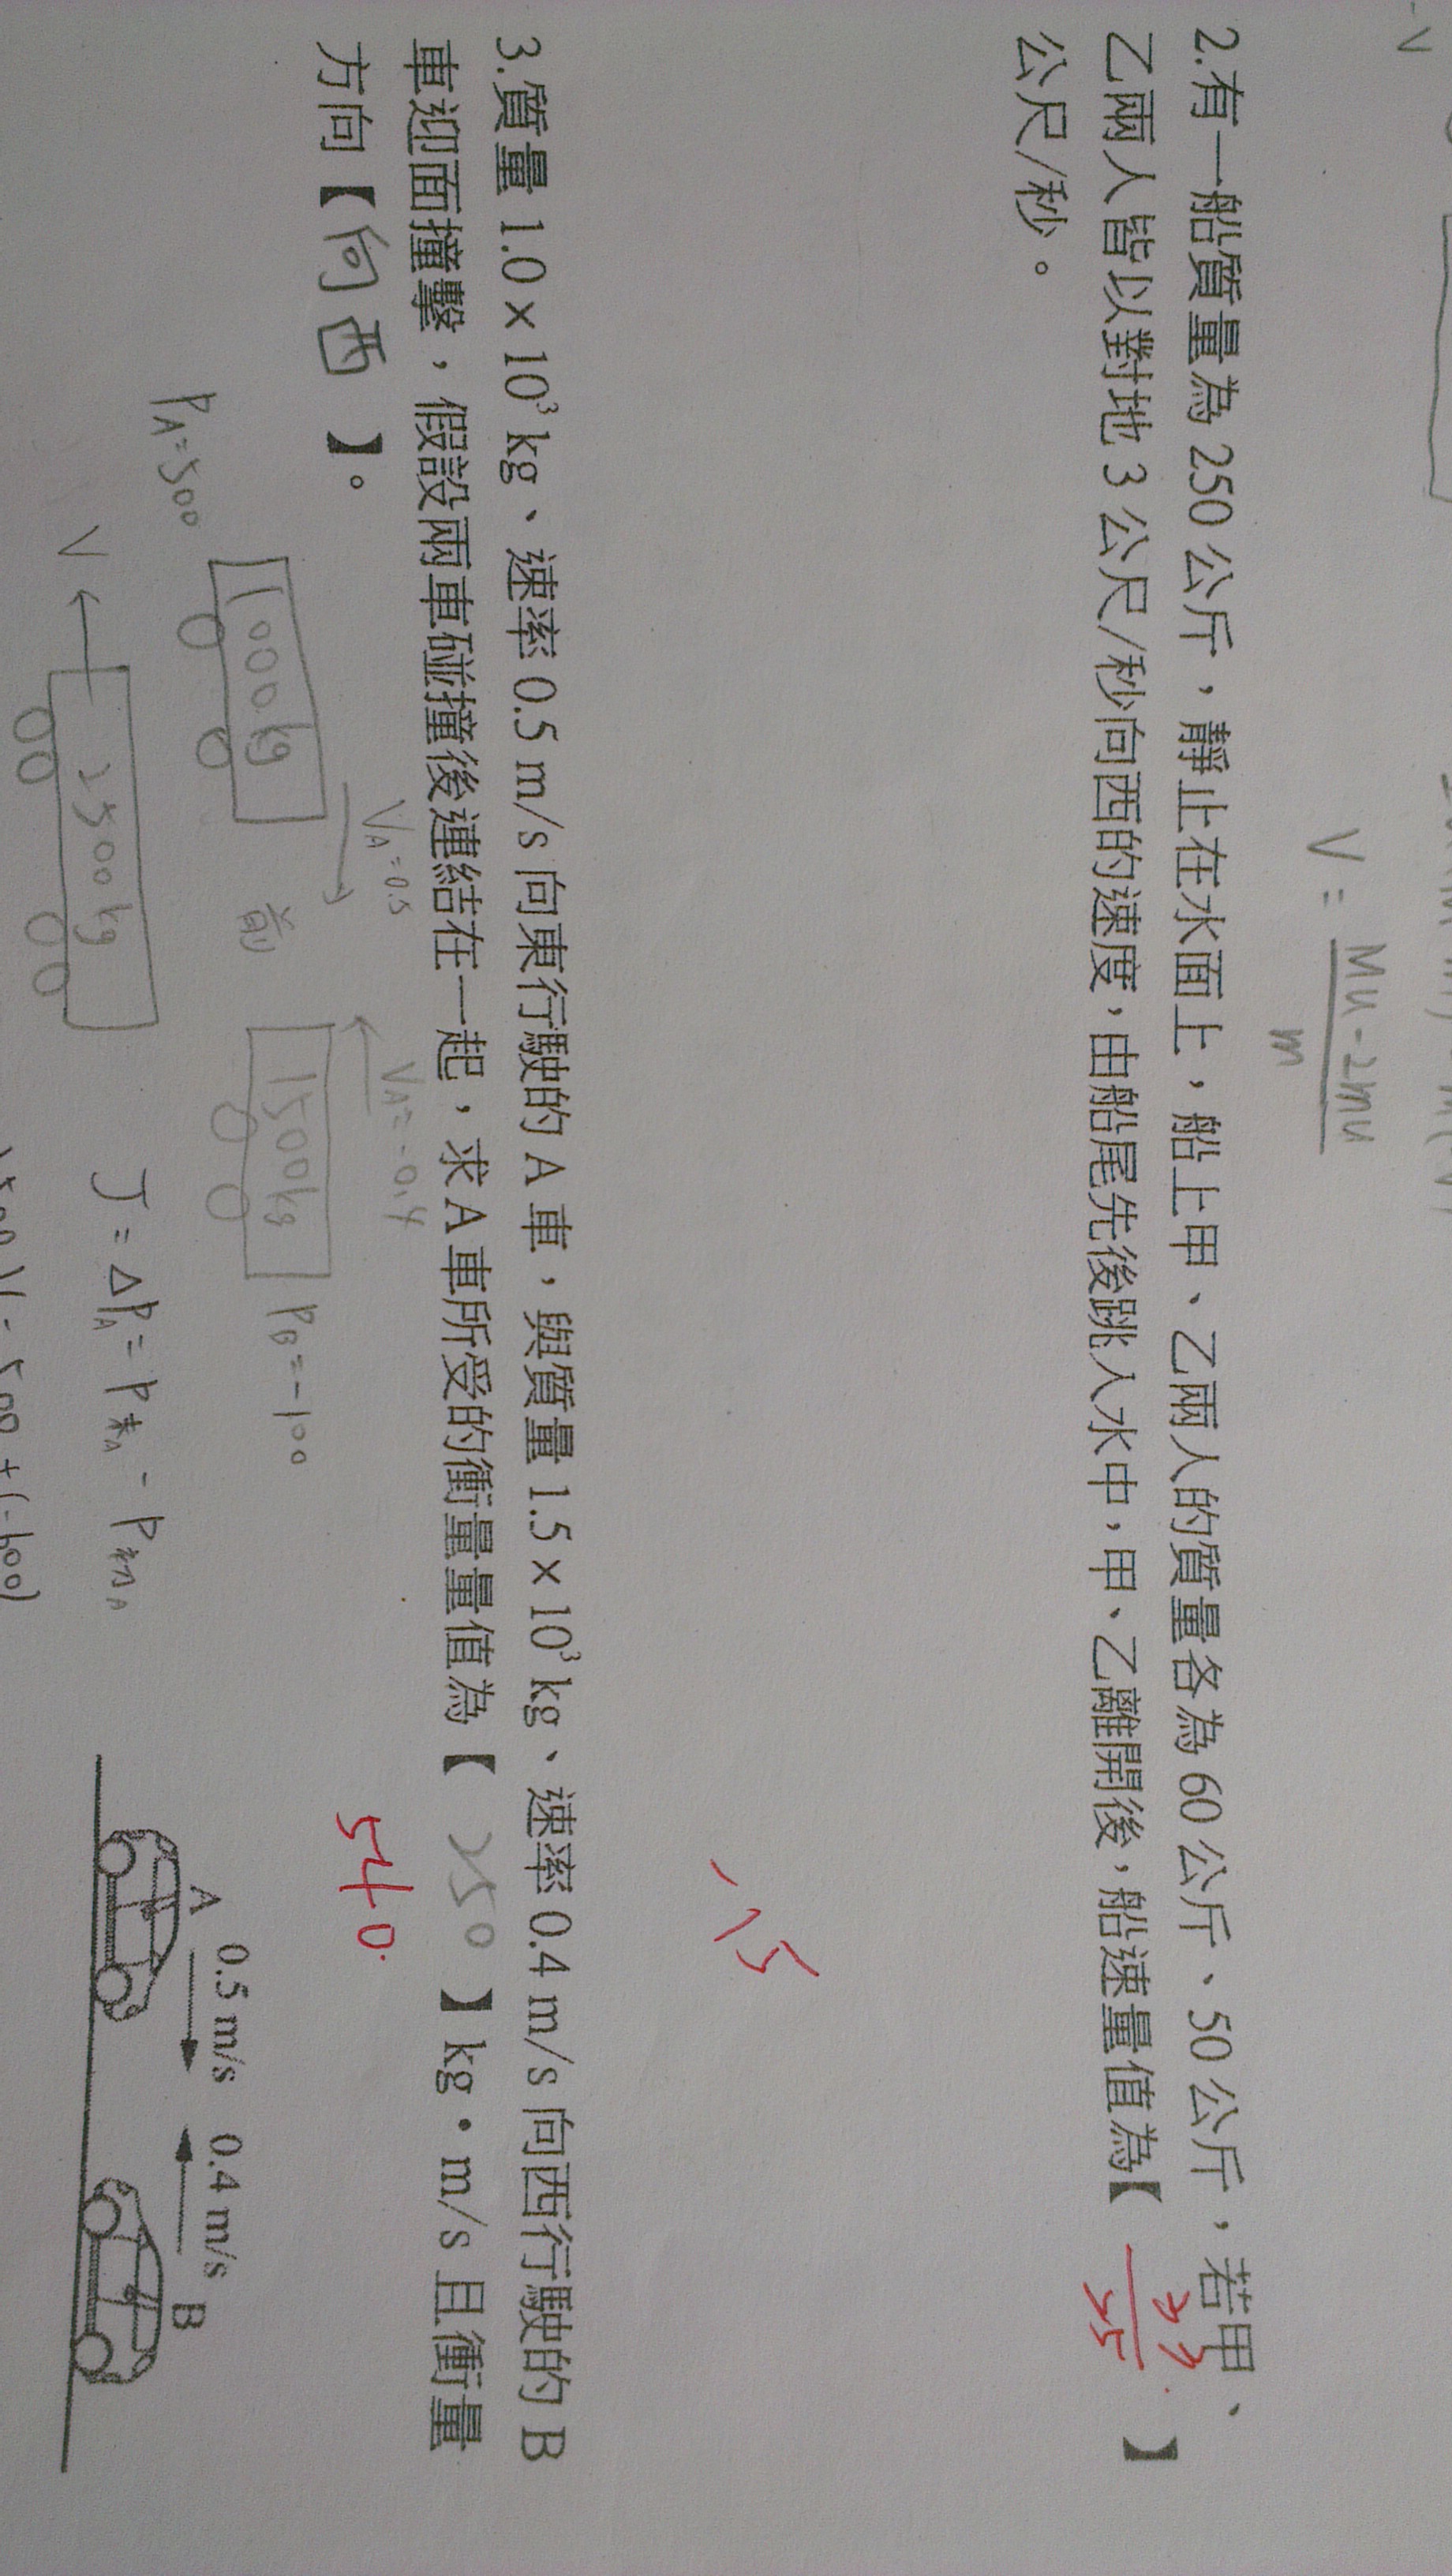 -V
V = (Mu - 2mu) / m
2.有一船質量為 250 公斤，靜止在水面上，船上甲、乙兩人的質量各為 60 公斤、50 公斤，若甲、
乙兩人皆以對地 3 公尺/秒向西的速度，由船尾先後跳入水中，甲、乙離開後，船速量值為【 33/25 】
公尺/秒。
3.質量 1.0 × 10³ kg、速率 0.5 m/s 向東行駛的 A 車，與質量 1.5 × 10³ kg、速率 0.4 m/s 向西行駛的 B
車迎面撞擊，假設兩車碰撞後連結在一起，求 A 車所受的衝量量值為【 250 】kg·m/s 且衝量
540
方向【 向西 】。
V_A = 0.5
V_A = -0.4
P_A = 500
1000kg
前
1500kg
P_B = -100
0.5 m/s 0.4 m/s
A
B
V
2500kg
J = ΔP_A = P末_A - P初_A